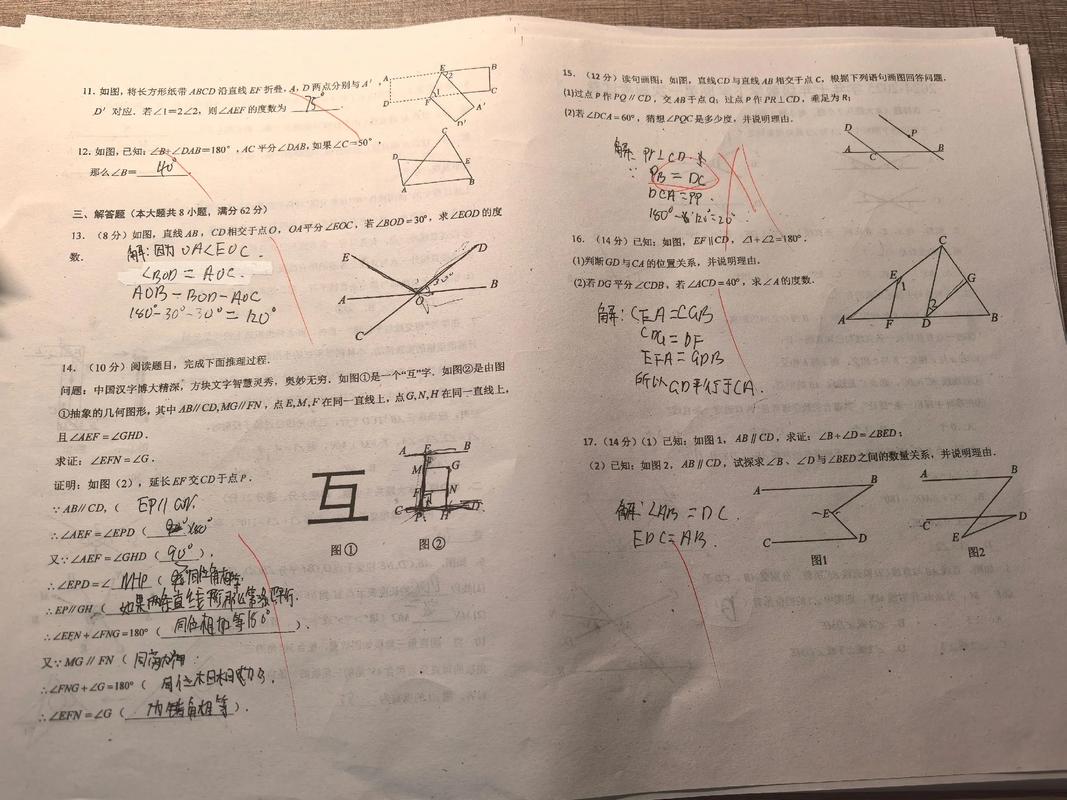 11. 如图，将长方形纸带 ABCD 沿直线 EF 折叠，A，D 两点分别与 A′，
D′ 对应．若∠1=2∠2，则∠AEF 的度数为 75°．
A
E
B
2
D
F
1
C
A′
D′
12. 如图，已知：∠B+∠DAB=180°，AC 平分∠DAB，如果∠C=50°，
那么∠B= 40°．
C
D
E
A
B
三、解答题（本大题共 8 小题，满分 62 分）
13. （8 分）如图，直线 AB，CD 相交于点 O，OA 平分∠EOC，若∠BOD=30°，求∠EOD 的度
数．
解：因为 OA∠EOC．
∠BOD = AOC．
AOB = BOD - AOC
180°-30°-30° = 120°
E
D
A
O
B
C
14. （10 分）阅读题目，完成下面推理过程．
问题：中国汉字博大精深，方块文字智慧灵秀，奥妙无穷．如图①是一个“互”字．如图②是由图
①抽象的几何图形，其中 AB∥CD,MG∥FN，点 E,M,F 在同一直线上，点 G,N,H 在同一直线上，
且 ∠AEF=∠GHD．
求证：∠EFN=∠G．
证明：如图（2），延长 EF 交 CD 于点 P．
∵AB∥CD,（ EP∥
∴∠AEF=∠EPD（
又∵∠AEF=∠GHD（ 90° ），
∴∠EPD=∠ MHP （ 同位角相等
∴EP∥GH（ 如果两条直线
∴∠EFN+∠FNG=180°（ 同位 相等180° ）．
又∵MG∥FN（
∴∠FNG+∠G=180°（
∴∠EFN=∠G（ 内错角相等 ）．
互
图①
A
E
B
M
G
F
N
C
P
H
D
图②
15. （12 分）读句画图：如图，直线 CD 与直线 AB 相交于点 C，根据下列语句画图回答问题．
(1)过点 P 作 PQ∥CD，交 AB 于点 Q；过点 P 作 PR⊥CD，垂足为 R；
(2)若∠DCA=60°，猜想∠PQC 是多少度，并说明理由．
解：PR⊥CD
∵ PB = DC
DCA = PP．
120°=20°
D
P
A
C
B
16. （14 分）已知：如图，EF∥CD，∠1+∠2=180°．
(1)判断 GD 与 CA 的位置关系，并说明理由．
(2)若 DG 平分∠CDB，若∠ACD=40°，求∠A 的度数．
解：CEA = CGB
CDG = DF
EFA = GDB
所以 GD平行于CA．
C
E
1
G
2
A
F
D
B
17. （14 分）（1）已知：如图 1，AB∥CD，求证：∠B+∠D=∠BED；
（2）已知：如图 2，AB∥CD，试探求∠B、∠D 与∠BED 之间的数量关系，并说明理由．
解：∠AB = DC．
EDC = AB．
A
B
E
C
D
图1
A
B
C
D
E
图2